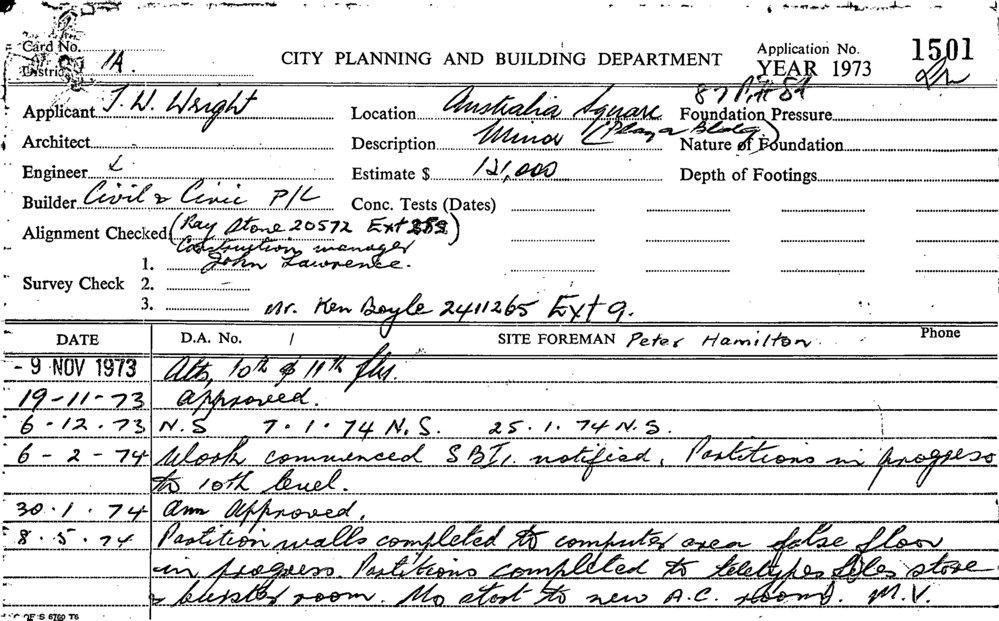 Card No.
District 1A.
CITY PLANNING AND BUILDING DEPARTMENT
Application No. 1501
YEAR 1973
87 Pitt St
Applicant J. W. Wright
Location Australia Square
Foundation Pressure
(Plaza Bldg)
Architect
Description Minor
Nature of Foundation
Engineer
Estimate $ 121,000
Depth of Footings
Builder Civil & Civic P/L
Conc. Tests (Dates)
Alignment Checked (Ray Stone 20572 Ext)
Constuction manager
1. John Lawrence.
Survey Check 2.
3. Mr. Ken Boyle 2411265 Ext 9.
DATE D.A. No. / SITE FOREMAN Peter Hamilton Phone
- 9 NOV 1973 Alts, 10th & 11th flrs.
19-11-73 Approved.
6.12.73 N.S 7.1.74 N.S. 25.1.74 N.S.
6-2-74 Work commenced SBI. notified, Partitions in progress
to 10th level.
30.1.74 Am Approved.
8.5.74 Partition walls completed to computer area false floor
in progress. Partitions completed to teletypes files store
& burster room. No start to new A.C. room. M.V.
C OF S 6700 T6